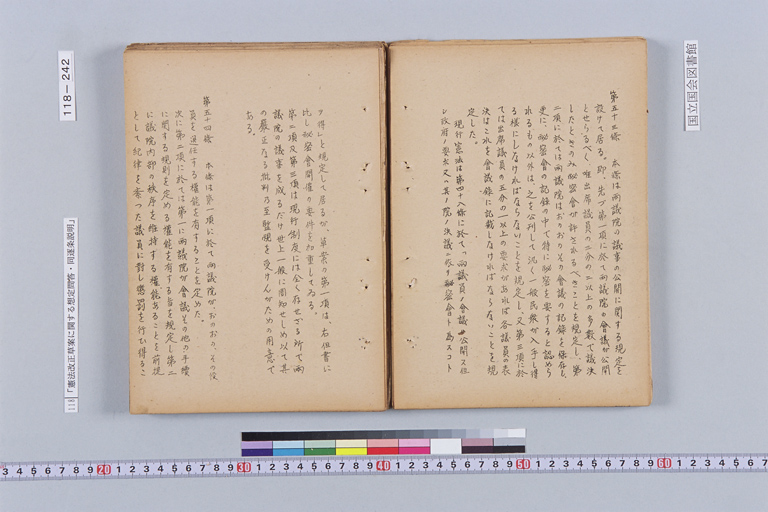 国立国会図書館
第五十三條 本條は両議院の議事の公開に関する規定を
設けて居る。即、先づ第一項に於て両議院の會議が公開
とせらるべく、唯出席議員の三分の二以上の多数で議決
したときのみ秘密會が許されるべきことを規定し、第
二項に於ては両議院はおのおのその會議の記録を保存し、
更に、秘密會の記録の中で特に秘密を要すると認めら
れるもの以外は、之を公刊して、汎く一般公衆が入手し得
る様にしなければならないことを規定し、又第三項に於
ては出席議員の五分の一以上の要求があれば各議員の表
決はこれを會議録に記載しなければならないことを規
定した。
現行憲法は第四十八條に於て、「両議員ノ會議ハ公開ス但
シ政府ノ要求又ハ其ノ院ノ決議ニ依リ秘密會ト為スコト
ヲ得」と規定して居るが、草案の第一項は、右但書に
比し秘密會開催の要件を加重してゐる。
第二項及第三項は現行制度には全く存せざる所で両
議院の議事を成るだけ世上一般に周知せしめ以て其
の厳正なる批判乃至監視を受けんがための用意で
ある。
第五十四條 本條は第一項に於て両議院がおのおの、その役
員を選任する権能を有することを定めた。
次に第二項に於ては第一に両議院が會議その他の手續
に関する規則を定める権能を有する旨を規定し第二
に議院内部の秩序を維持する権能あることを前提
として紀律を紊つた議員に対し懲罰を行ひ得るこ
118-242
118 「憲法改正草案に関する想定問答・同逐条説明」
3 4 5 6 7 8 9 20 1 2 3 4 5 6 7 8 9 30 1 2 3 4 5 6 7 8 9 40 1 2 3 4 5 6 7 8 9 50 1 2 3 4 5 6 7 8 9 60 1 2 3 4 5 6 7